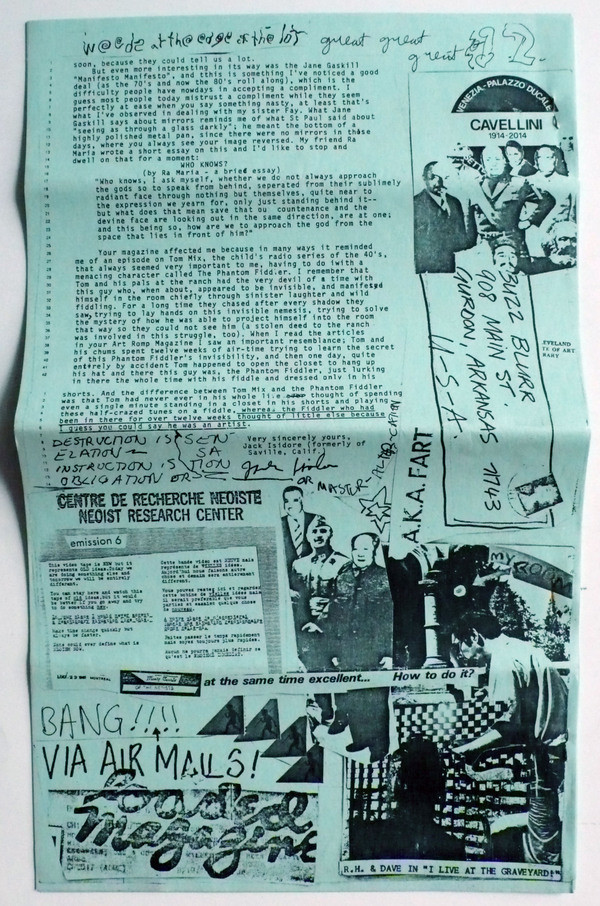 great great
great
soon, because they could tell us a lot.
But even more interesting in its way was the Jane Gaskill
"Manifesto Manifesto", and tthis is something I've noticed a good
deal (as the 70's and now the 80's roll along), which is the
difficulty people have nowdays in accepting a compliment. I
guess most people today mistrust a compliment while they seem
perfectly at ease when you say something nasty, at least that's
what I've observed in dealing with my sister Fay. What Jane
Gaskill says about mirrors reminds me of what St Paul said about
"seeing as through a glass darkly"; he meant the bottom of a
highly polished metal pan, since there were no mirrors in those
days, where you always see your image reversed. My friend Ra
Maria wrote a short essay on this and I'd like to stop and
dwell on that for a moment:
WHO KNOWS?
(by Ra Maria - a brief essay)
"Who knows, I ask myself, whether we do not always approach
the gods so to speak from behind, seperated from their sublimely
radiant face through nothing but themselves, quite near to
the expression we yearn for, only just standing behind it--
but what does that mean save that ou  countenance and the
devine face are looking out in the same direction, are at one;
and this being so, how are we to approach the god from the
space that lies in front of him?"
Your magazine affected me because in many ways it reminded
me of an episode on Tom Mix, the child's radio series of the 40's,
that always seemed very important to me, having to do with a
menacing character called The Phantom Fiddler. I remember that
Tom and his pals at the ranch had the very devil of a time with
this guy who, when about, appeared to be invisible, and manifested
himself in the room chiefly through sinister laughter and wild
fiddling. For a long time they chased after every shadow they
saw, trying to lay hands on this invisible nemesis, trying to solve
the mystery of how he was able to project himself into the room
that way so they could not see him (a stolen deed to the ranch
was involved in this struggle, too). When I read the articles
in your Art Romp Magazine I saw an important resemblance; Tom and
his chums spent twelve weeks of air-time trying to learn the secret
of this Phantom Fiddler's invisibility, and then one day, quite
entirely by accident Tom happened to open the closet to hang up
his hat and there this guy was, the Phantom Fiddler, just lurking
in there the whole time with his fiddle and dressed only in his
shorts. And the difference between Tom Mix and the Phantom Fiddler
was that Tom had never ever in his whole life thought of spending
even a single minute standing in a closet in his shorts and playing
these half-crazed tunes on a fiddle, whereas, the Fiddler who had
been in there for over twelve weeks thought of little else because
I guess you could say he was an artist.
Very sincerely yours,
Jack Isidore (formerly of
Saville, Calif.
DESTRUCTION IS
ELATION
INSTRUCTION IS
OBLIGATION OR
SEN
SA
TION
OR MASTER
VENEZIA-PALAZZO DUCALE
CAVELLINI
1914-2014
BUZZ BLURR
908 MAIN ST.
GURDON, ARKANSAS 71743
U.S.A.
A.K.A. FART
CENTRE DE RECHERCHE NEOISTE
NEOIST RESEARCH CENTER
emission 6
MY ROOM
at the same time excellent... How to do it?
BANG!!!!
VIA AIR MAILS!
Loaded
Magazine
R.H. & DAVE IN "I LIVE AT THE GRAVEYARD!"